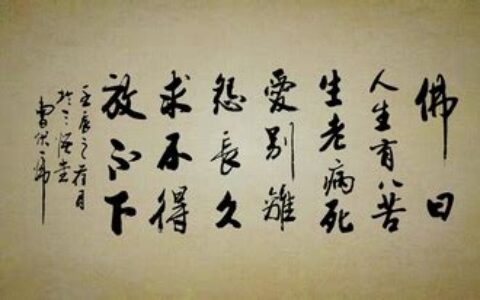 佛曰
人生有八苦
生老病死
爱别離
怨長久
求不得
放不下
壬辰之荷月